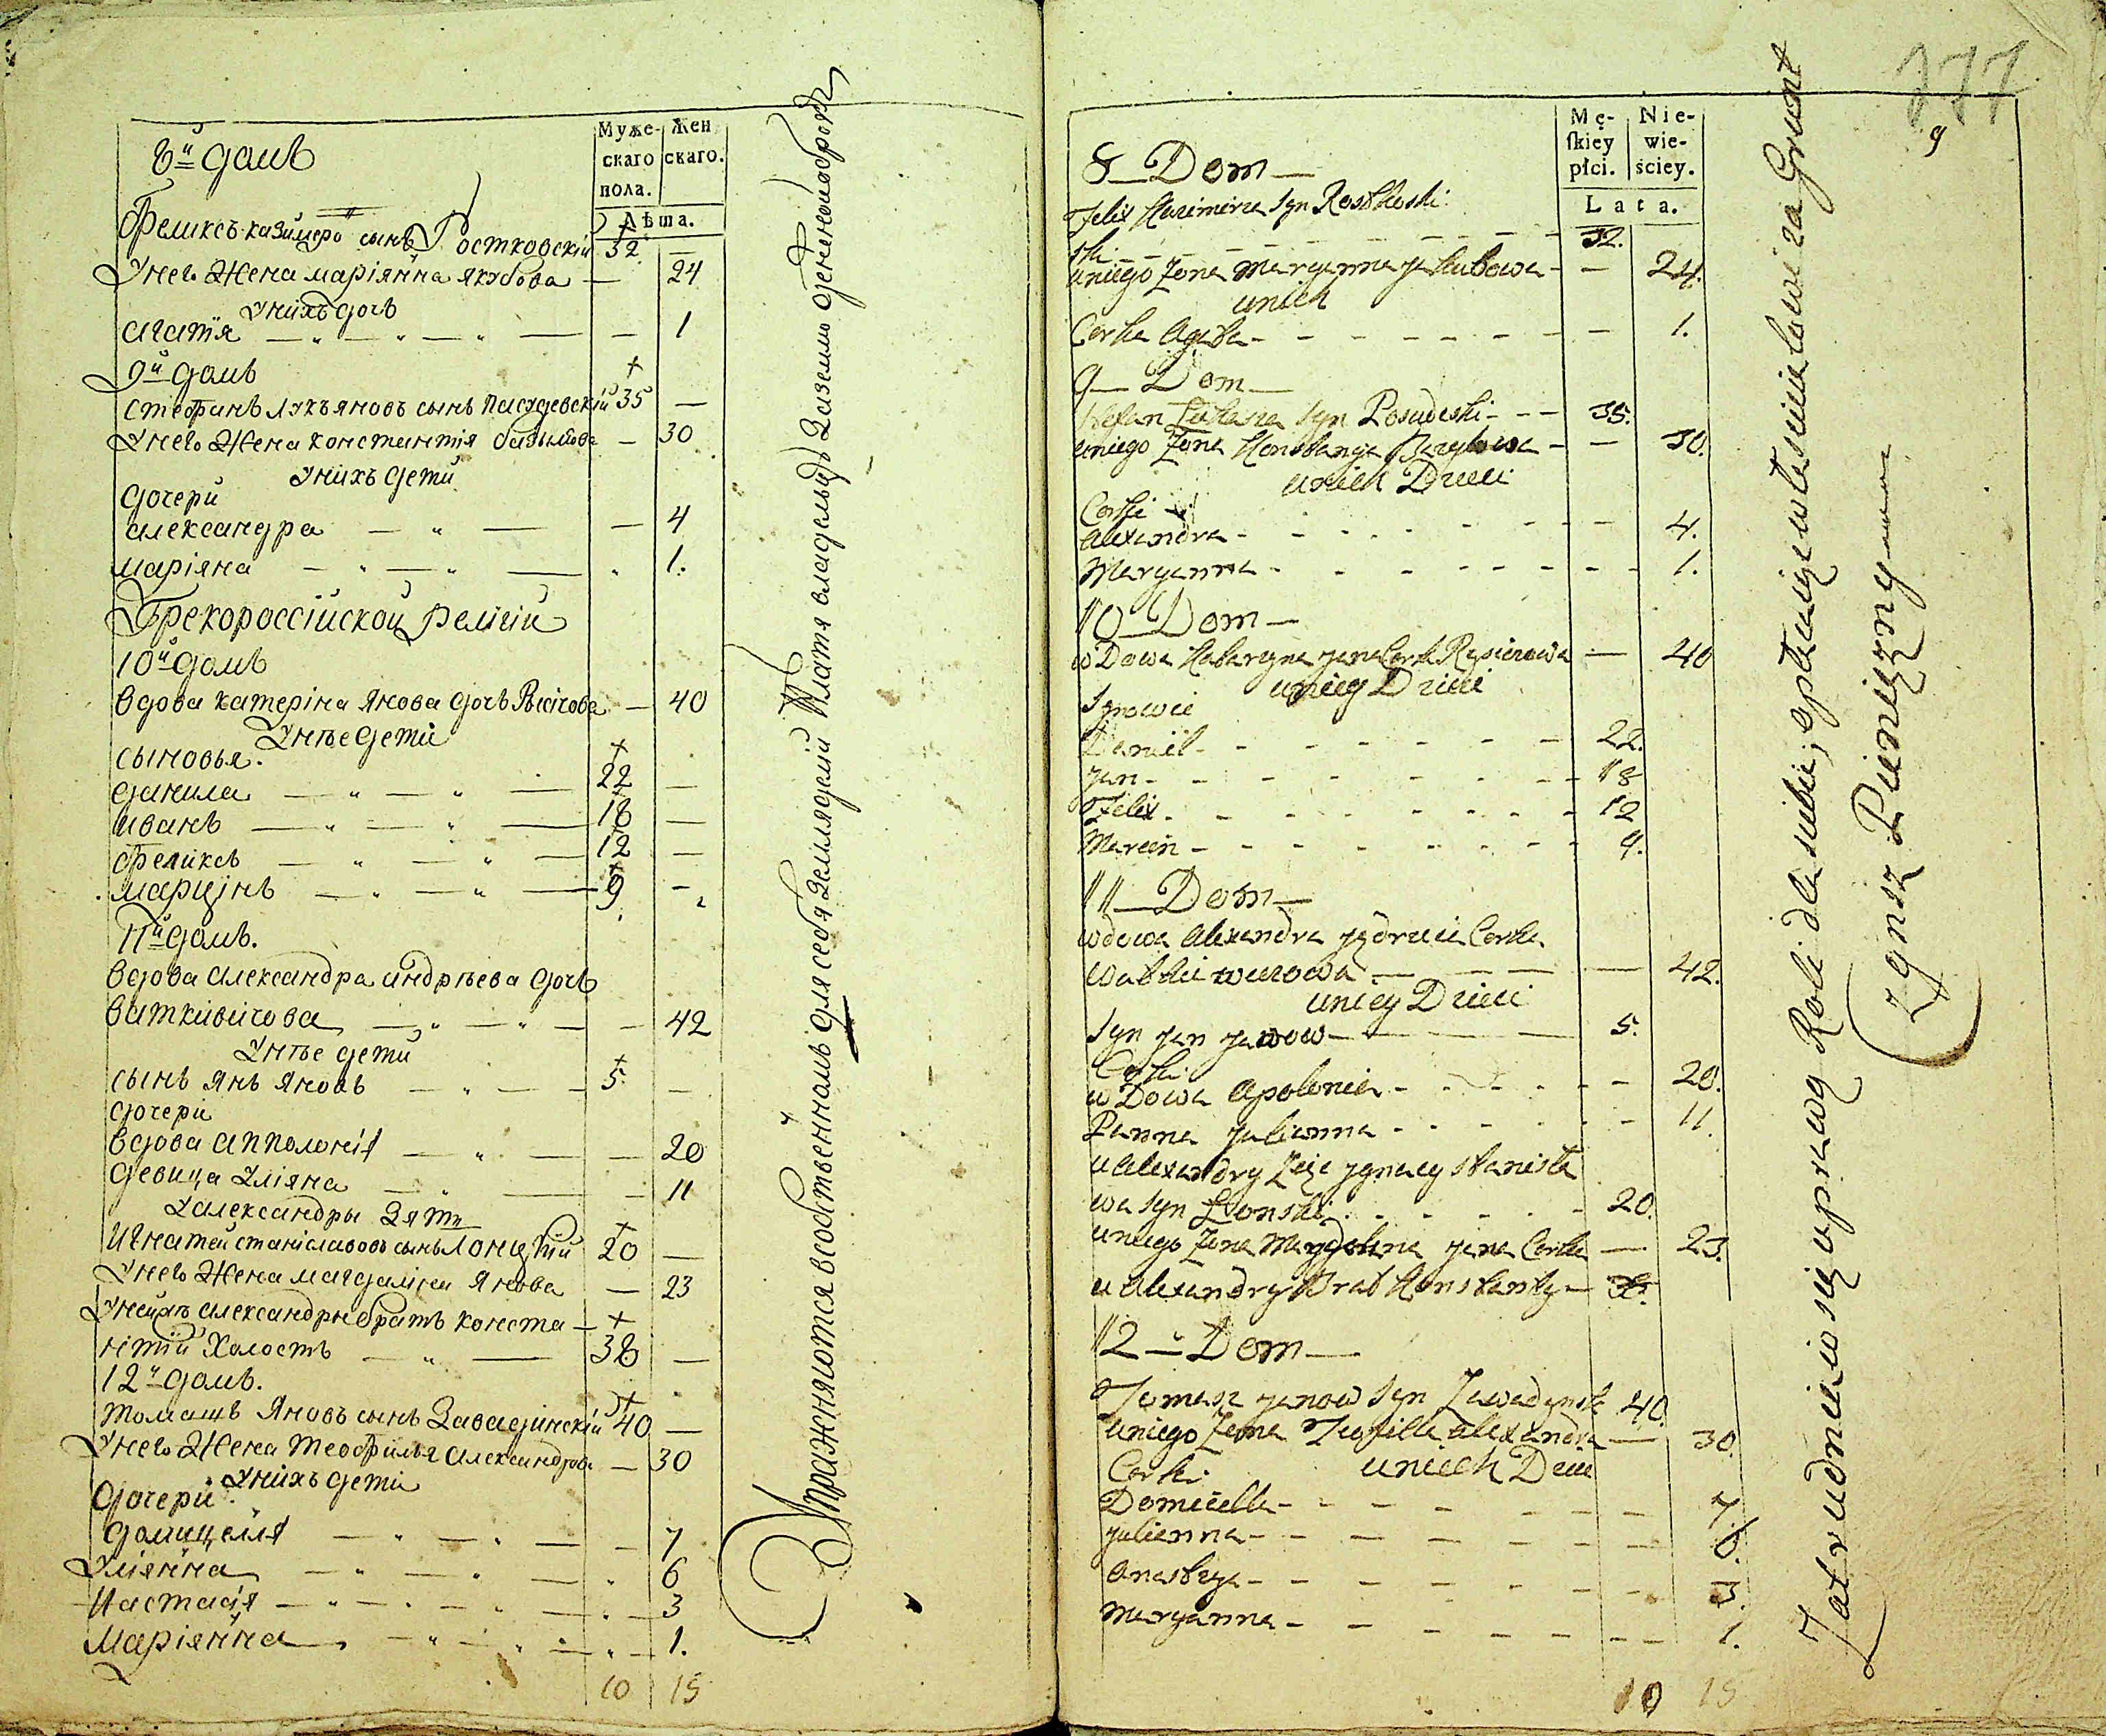 Муже-
скаго
пола.
Жен
скаго.
Лѣта.
8й домъ
Феликсъ Казимеро сынъ Ростковскій 32 —
Унего Жена маріянна якубова — 24
Унихъ дочь
агатія — 1
9й домъ
стефанъ лукъяновъ сынъ пасудевскій 35 —
Унего Жена константія базылова — 30
Унихъ дети
дочери
александра — 4
маріяна 1.
Грекороссійской религіи
10й домъ
вдова катеріна янова дочь — 40
Унѣе дети
сыновья.
данила 22 —
иванъ 18 —
феликсъ 12 —
марцінъ 9 —
11й домъ.
вдова александра андрѣева дочь
ваткивічова — 42
Унѣе дети
сынъ янъ яновъ 5. —
дочери
вдова апполонія — 20
девица уліяна — 11
Уалександры зять
игнатей станіславовъ сынъ Лонцкій 20 —
Унего Жена магдалина янова — 23
александры братъ конста —
нтій холостъ 38 —
12й домъ.
томашъ яновъ сынъ Завадинскій 40 —
Унего Жена теофилья александрова — 30
Унихъ дети
дочери
домицеля — 7
Уліянна 6
настасія 3
Маріянна 1.
10 15
Упражняются всобственномъ для себя земледелии платя владельцу заземлю денежной оброкъ
177
9
Mę-
ſkiey
płci.
Nie-
wie-
ściey.
Lata.
8 — Dom —
Felix Kazimierza Syn Rostkoski
ski 32.
uniego Żona Maryanna Jakubowa — — 24.
unich
Corka Agata — 1.
9 — Dom —
Stefan Łukasza Syn Posudeski 35.
uniego Żona Konstancya Bazylowa — — 30.
unich Dzieci
Corki
Alexandra 4.
Maryanna 1.
10 — Dom —
wDowa Katarzyna Jana Corka — 40
uniey Dzieci
Synowie
Daniel 22.
Jan 18
Felix 12
Marcin 9.
11 — Dom —
wdowa Alexandra Jędrzeia Corka
Watkiewiczowa — 42.
uniey Dzieci
Syn Jan Janow — 5.
Corki
wDowa Apolonia — 20.
Panna Julianna — 11.
u Alexandry Zięć Jgnacy Stanisła
wa Syn Łonski 20.
uniego Żona Magdalena Jana Corka — 23.
u Alexandry Brat Konstanty —
12 — Dom —
Tomasz Janow Syn Zawadynsk 40.
uniego Żona Teofilla Alexandra — 30.
Corki unich Dzieci
Domicella 7.
Julianna 6.
Anastazya 3.
Maryanna 1.
10 15
Zatrudniaio się uprawą Roli dla siebie, opłacaiąc włascicielowi za Grunt
Czynsz Pieniężny